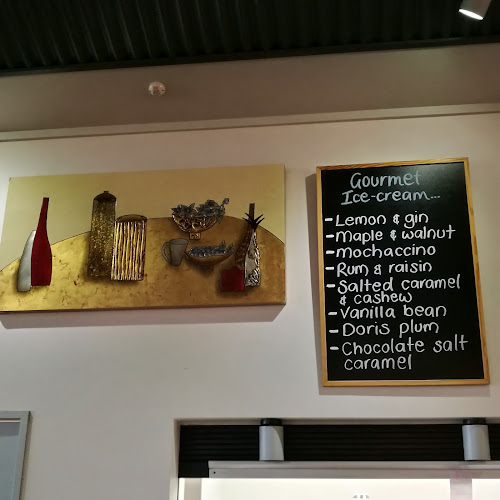 Gourmet
Ice-cream...
- Lemon & gin
- Maple & walnut
- mochaccino
- Rum & raisin
- Salted caramel
& cashew
- Vanilla bean
- Doris plum
- Chocolate salt
caramel